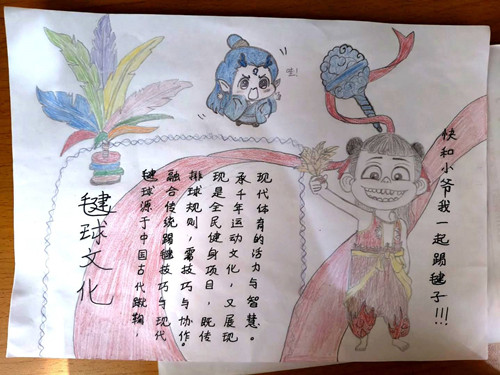 毽球文化
毽球源于中国古代蹴鞠，
融合传统踢毽技巧与现代
排球规则，需技巧与协作。
现是全民健身项目，既传
承千年运动文化，又展现
现代体育的活力与智慧。
快和小爷我一起踢毽子!!!